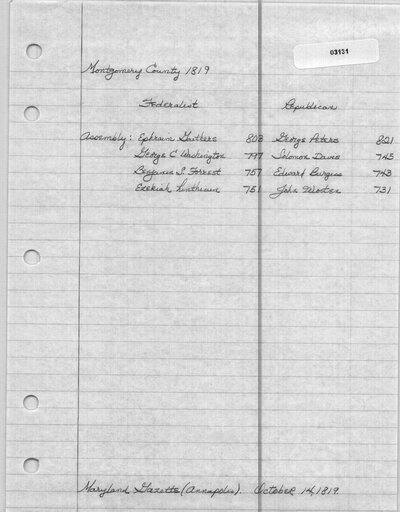 03131
Montgomery County 1819
Federalist Republican
Assembly: Ephraim Gaither 803 George Peters 821
George C Washington 797 Solomon Davis 745
Benjamin S. Forrest 757 Edward Burgess 743
Ezekiah Linthicum 751 John Wooten 731
Maryland Gazette (Annapolis). October 14, 1819.